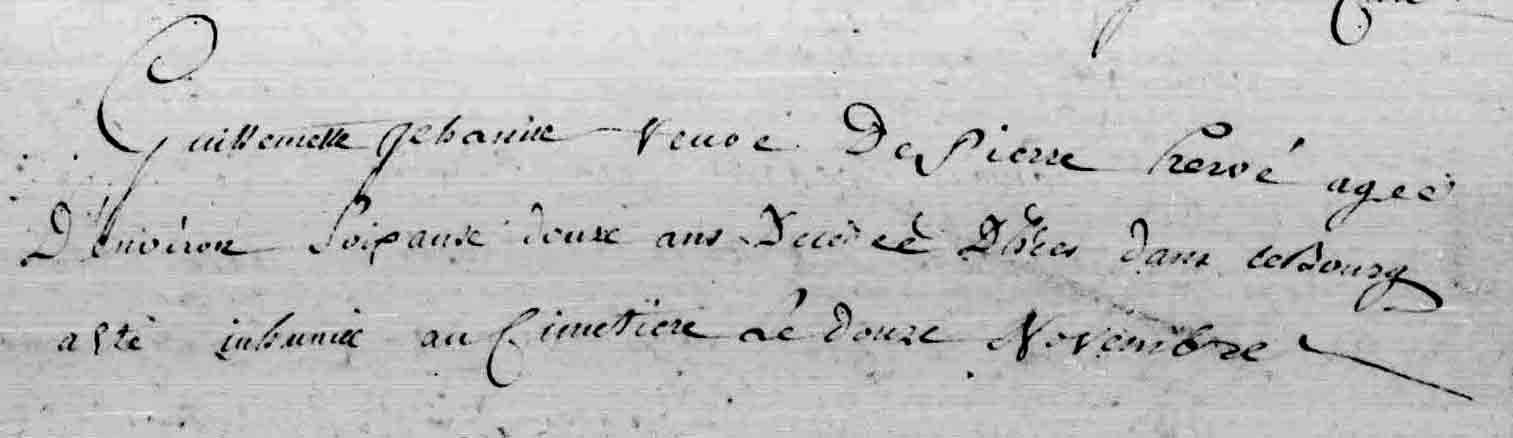 Guillemette Jehanne veuve De Pierre hervé agée
D'environ Soixante douze ans Decedée D'hier dans le Bourg
a eté inhumée au Cimetiere Le douze Novembre